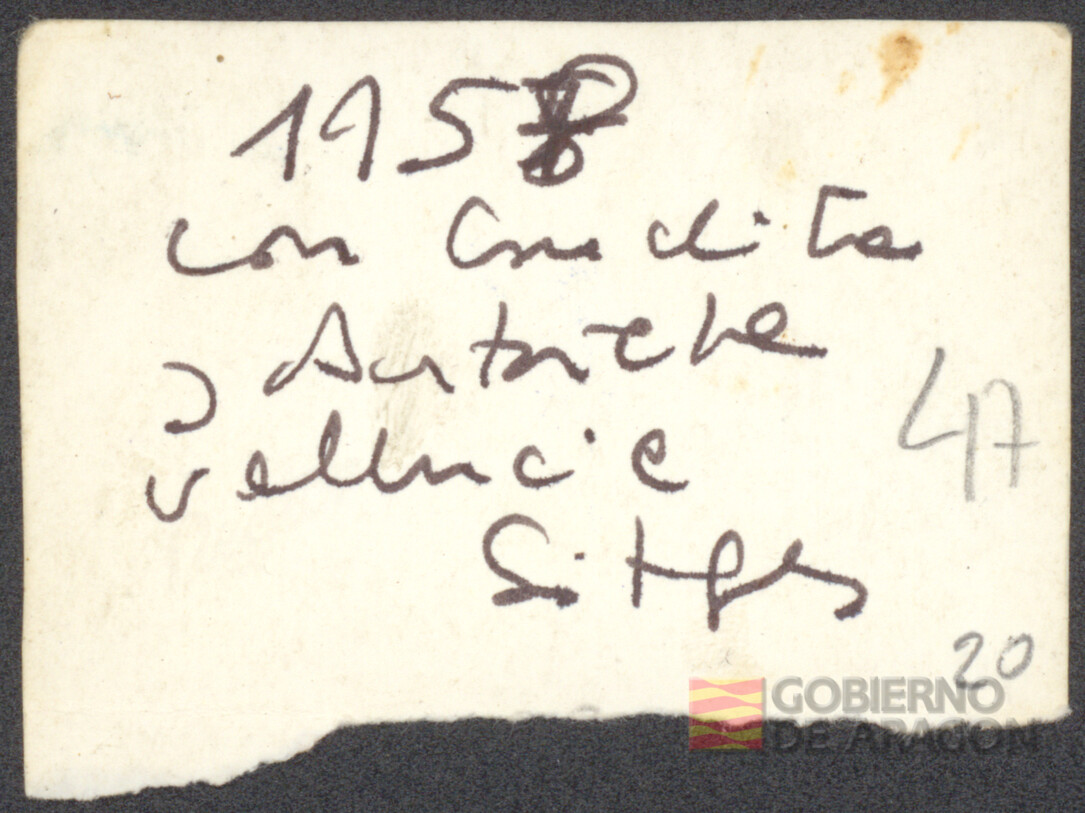 1958
con Conchita
y Antoñete
Valencia
Sitges
47
20
GOBIERNO
DE ARAGON